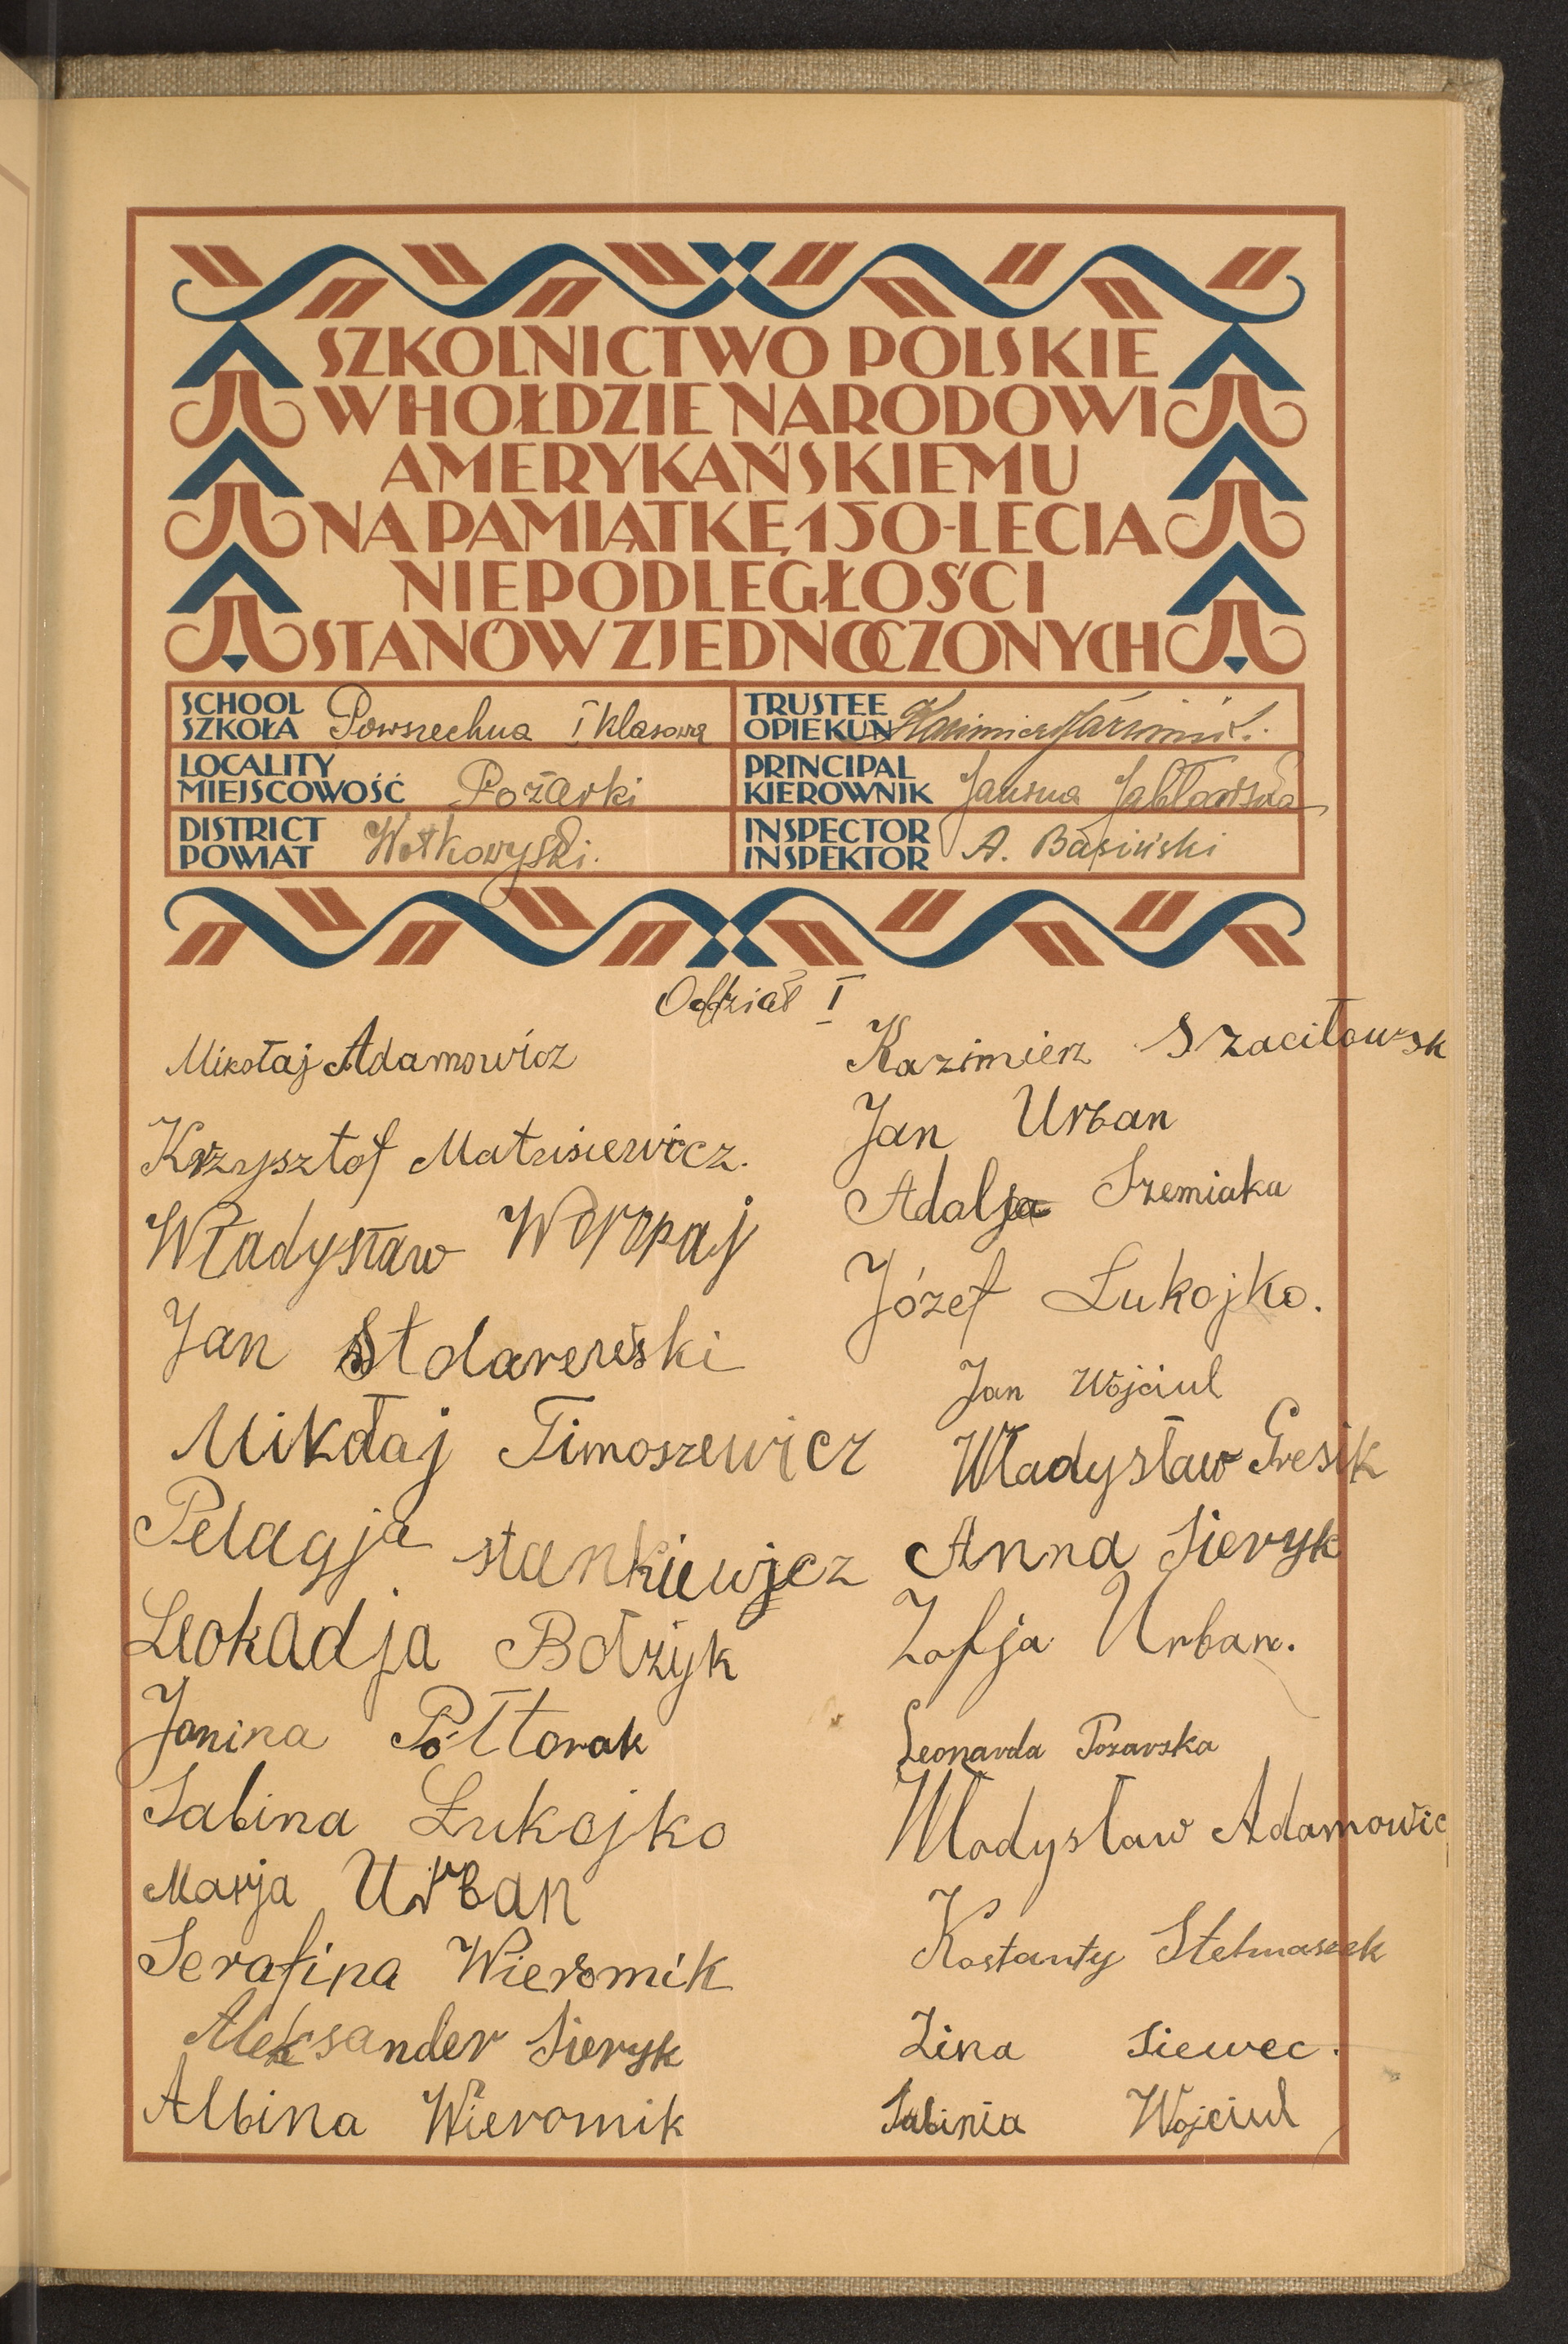 SZKOLNICTWO POLSKIE
W HOŁDZIE NARODOWI
AMERYKAŃSKIEMU
NA PAMIĄTKĘ 150-LECIA
NIEPODLEGŁOŚCI
STANÓW ZJEDNOCZONYCH
SCHOOL
SZKOŁA Powszechna I klasowa
TRUSTEE
OPIEKUN Kazimierz
LOCALITY
MIEJSCOWOŚĆ Pożarki
PRINCIPAL
KIEROWNIK Janina Jabłońska
DISTRICT
POWIAT Wołkowyski.
INSPECTOR
INSPEKTOR A. Basiński
Oddział I
Mikołaj Adamowicz
Krzysztof Matusiewicz.
Władysław Woropaj
Jan
Mikołaj Timoszewicz
Pelagja stankiewicz
Leokadja Bołzyk
Janina Półtorak
Sabina Łukojko
Marja Urban
Serafina Wieromik
Aleksander Sieryk
Albina Wieromik
Kazimierz Szaciłowsk
Jan Urban
Adalja Szemiaka
Józef Łukojko.
Jan Wojciul
Władysław Gresik
Anna Sieryk
Zofja Urban.
Leonarda Pozarska
Władysław Adamowic
Kostanty Stelmaszek
Zina Siewec.
Sabinia Wojciul